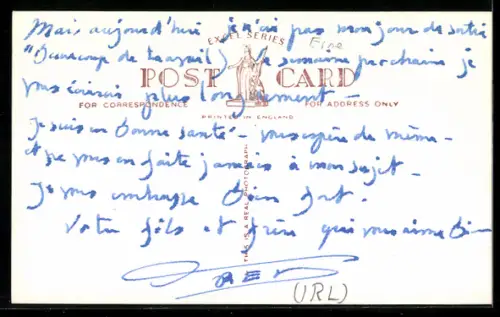 Mais aujourd'hui je n'ai pas mon jour de sortie
EXCEL SERIES
Eire
"Beaucoup de travail) la semaine prochaine je
POST CARD
vous écrirai plus longuement -
FOR CORRESPONDENCE FOR ADDRESS ONLY
PRINTED IN ENGLAND
Je suis en bonne santé - vous espère de même -
et ne vous en faite jamais à mon sujet -
THIS IS A REAL PHOTOGRAPH
Je vous embrasse bien fort.
Votre fils et frère qui vous aime bien
FRED
(IRL)